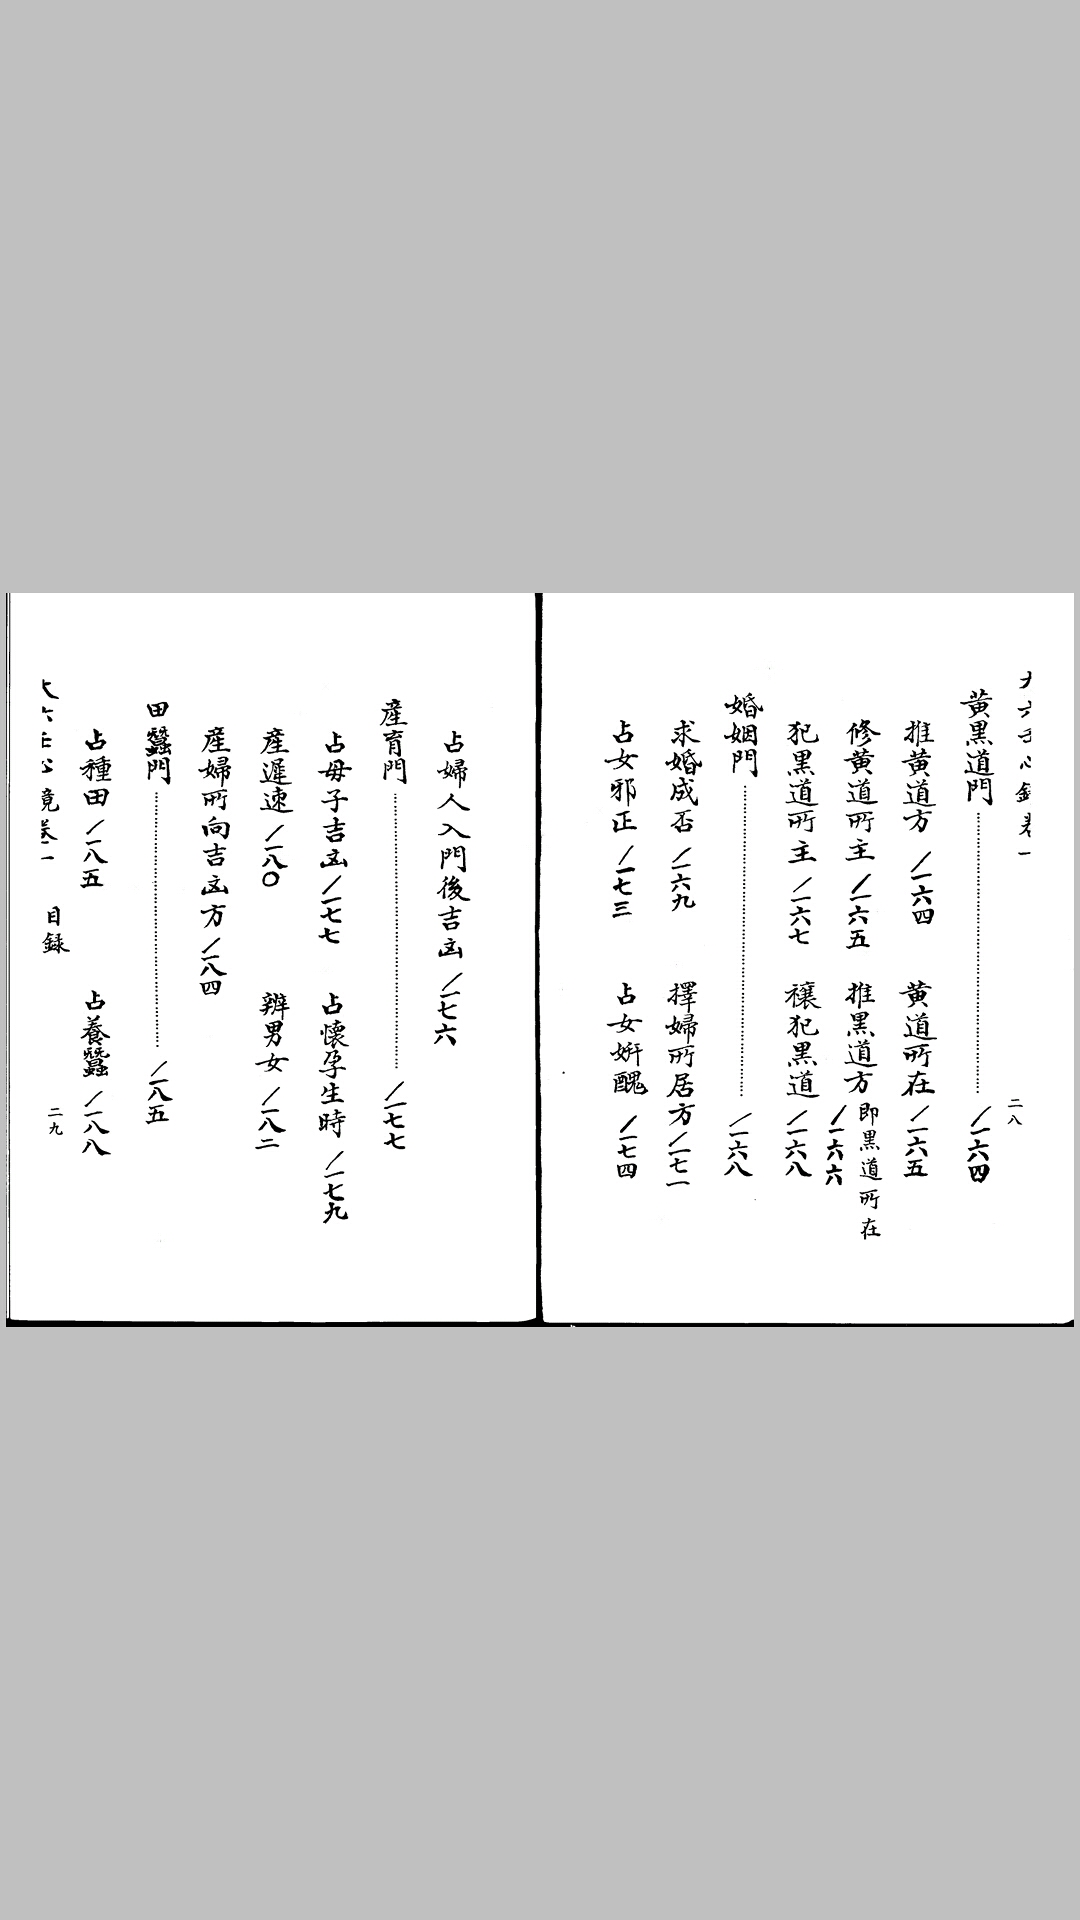 二八
黃黑道門 /一六四
推黃道方 /一六四 黃道所在 /一六五
修黃道所主 /一六五 推黑道方 即黑道所在 /一六六
犯黑道所主 /一六七 禳犯黑道 /一六八
婚姻門 /一六八
求婚成否 /一六九 擇婦所居方 /一七一
占女邪正 /一七三 占女妍醜 /一七四
占婦人入門後吉凶 /一七六
產育門 /一七七
占母子吉凶 /一七七 占懷孕生時 /一七九
產遲速 /一八〇 辨男女 /一八二
產婦所向吉凶方 /一八四
田蠶門 /一八五
占種田 /一八五 占養蠶 /一八八
目錄 二九